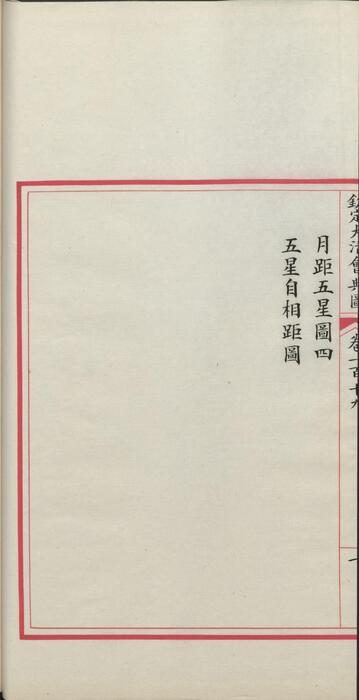 欽定大清會典圖
卷一百十九
一
月距五星圖四
五星自相距圖